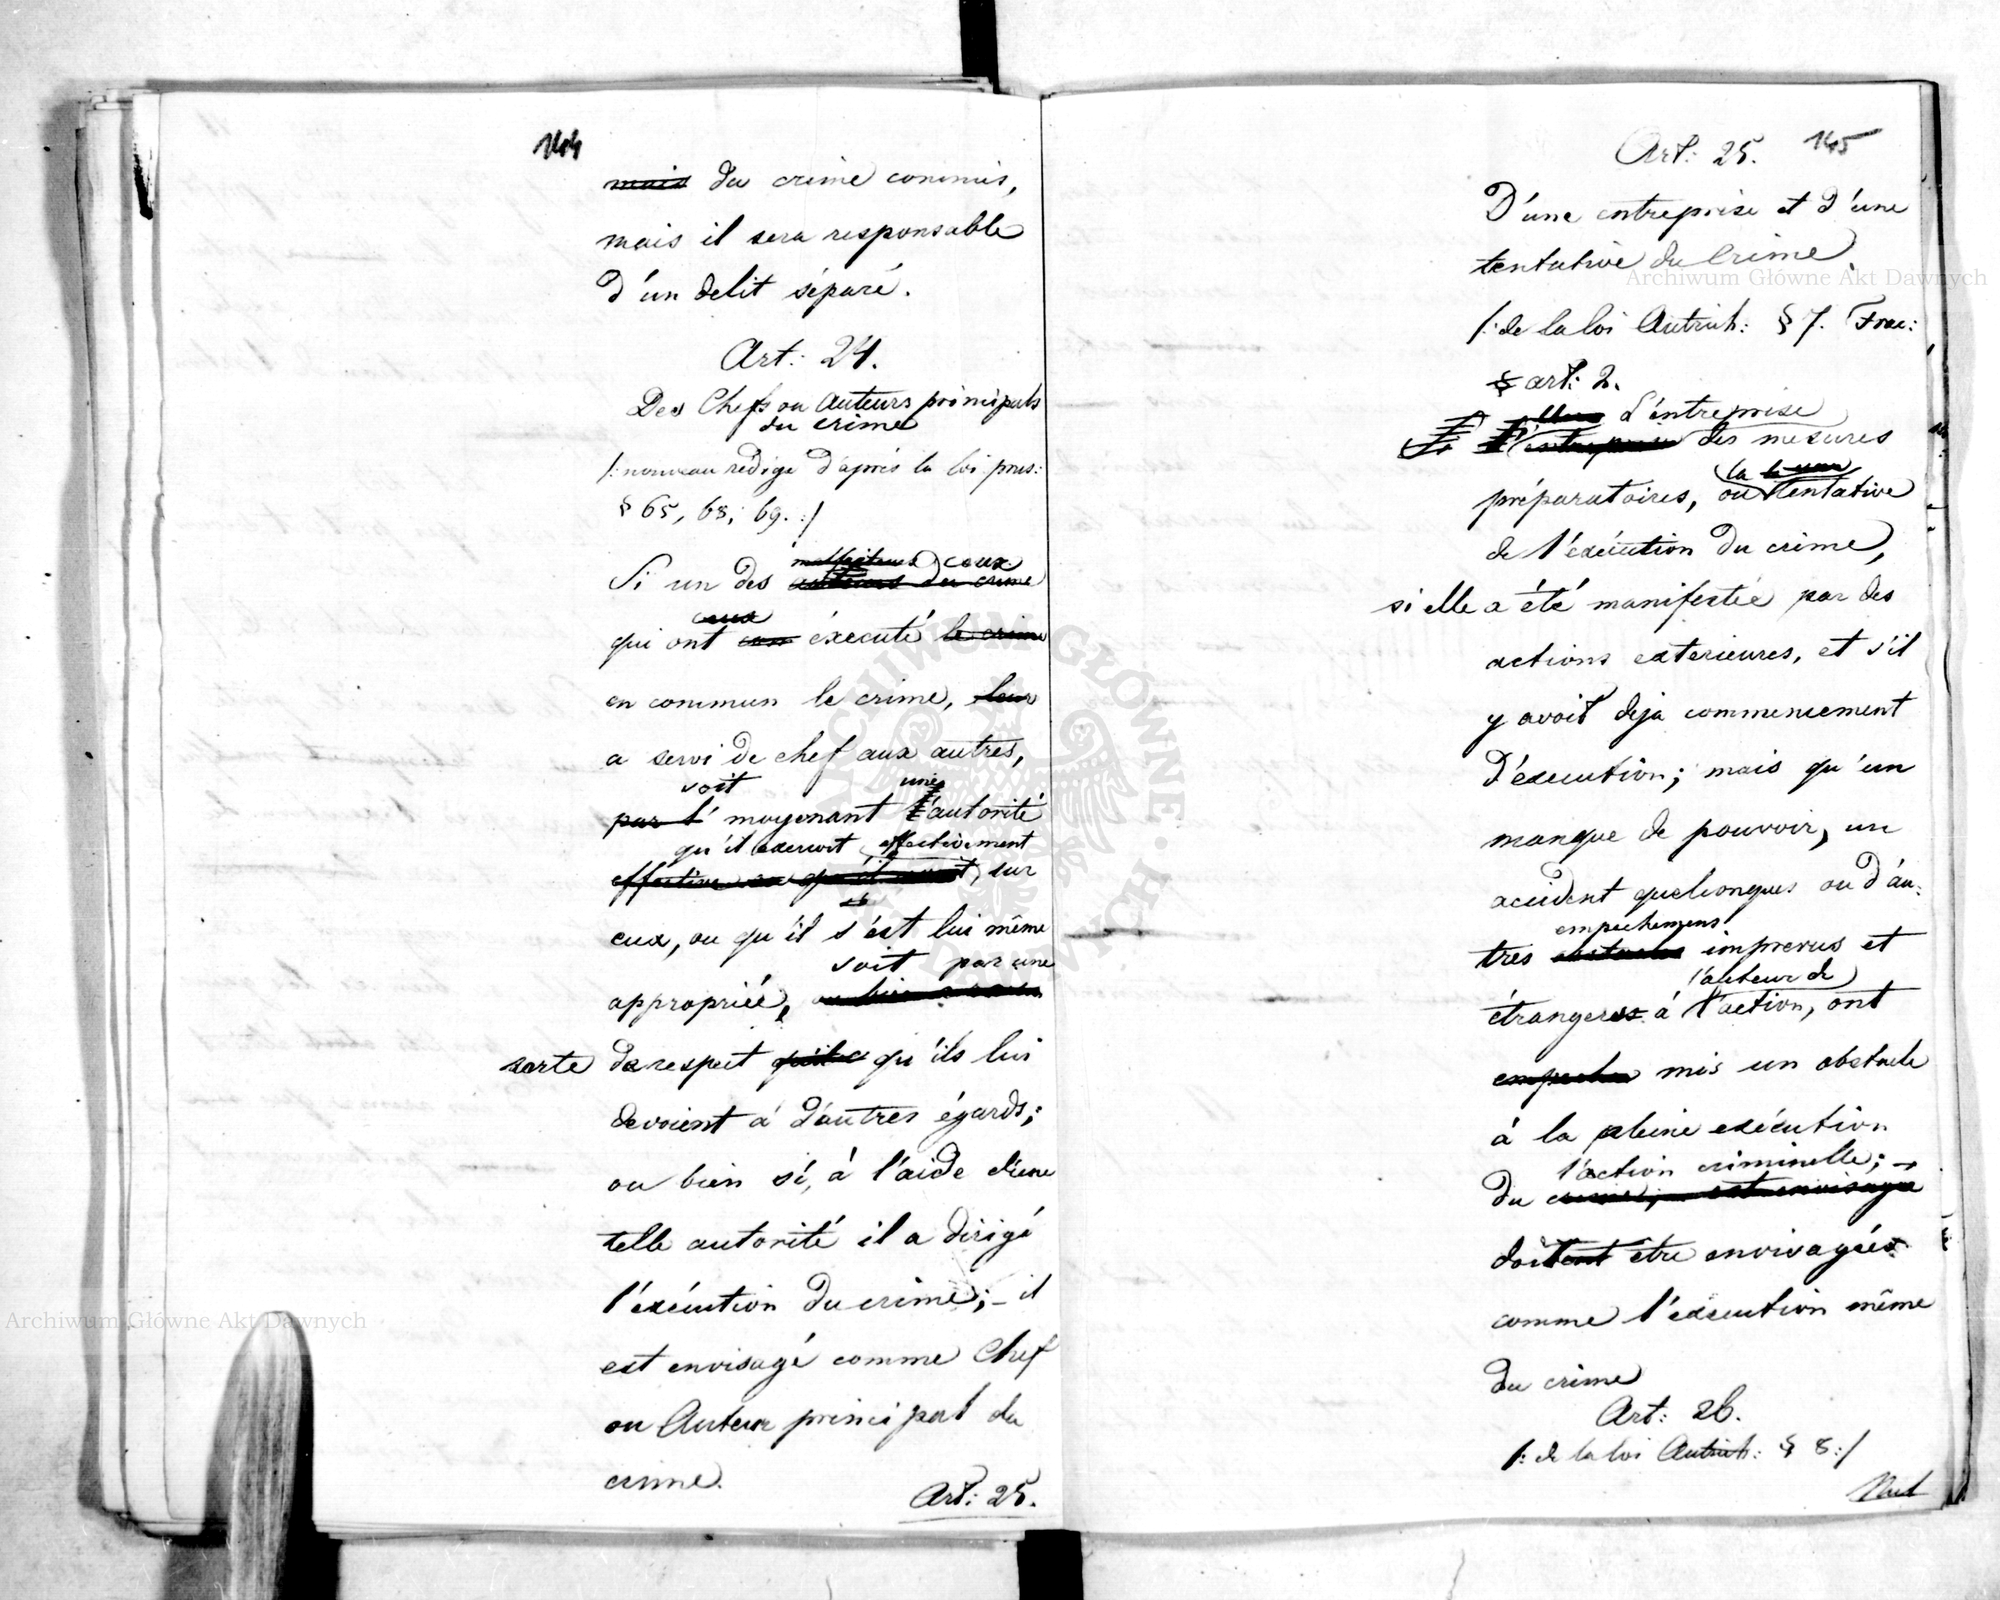 144
mais du crime commis,
mais il sera responsable
d'un delit séparé.
Art: 24.
Des Chefs ou Auteurs principals
du crime
/: nouveau redigé d'après la loi prus:
§ 65, 68, 69. :/
malfaiteurs ceux
Si un des auteurs du crime
ceux
qui ont éxecuté le crime
en commun le crime, leur
a servi de chef aux autres,
soit une
par l' moyenant l'autorité
qu'il exercoit effectivement
effective qu'il avoit, sur
eux, ou qu'il s'est lui même
soit par une
appropriée, ou bien
sorte de respect qu'il a qu'ils lui
devoient à d'autres égards;
ou bien si, à l'aide d'une
telle autorité il a dirigé
l'exécution du crime; – il
est envisagé comme Chef
ou Auteur principal du
crime.
Art: 25.
Art: 25. 145
D'une entreprise et d'une
tentative du Crime.
/: de la loi Autrich: § 7. Franc:
§ art: 2.
L'entreprise
Si l'entreprise des mesures
la
préparatoires, ou tentative
de l'exécution du crime,
si elle a été manifestée par des
actions exterieures, et s'il
y avoit deja commencement
d'execution; mais qu'un
manque de pouvoir, un
accident quelconques ou d'au-
empechemens
tres obstacles imprevus et
l'auteur de
étrangers à l'action, ont
empeché mis un obstacle
à la pleine exécution
l'action criminelle; –
du crime; est envisagée
doitent être envisagées
comme l'execution même
du crime
Art: 26.
/: de la loi Autrich: § 8 :/
Nul
Archiwum Główne Akt Dawnych
Archiwum Główne Akt Dawnych
ARCHIWUM GŁÓWNE AKT DAWNYCH